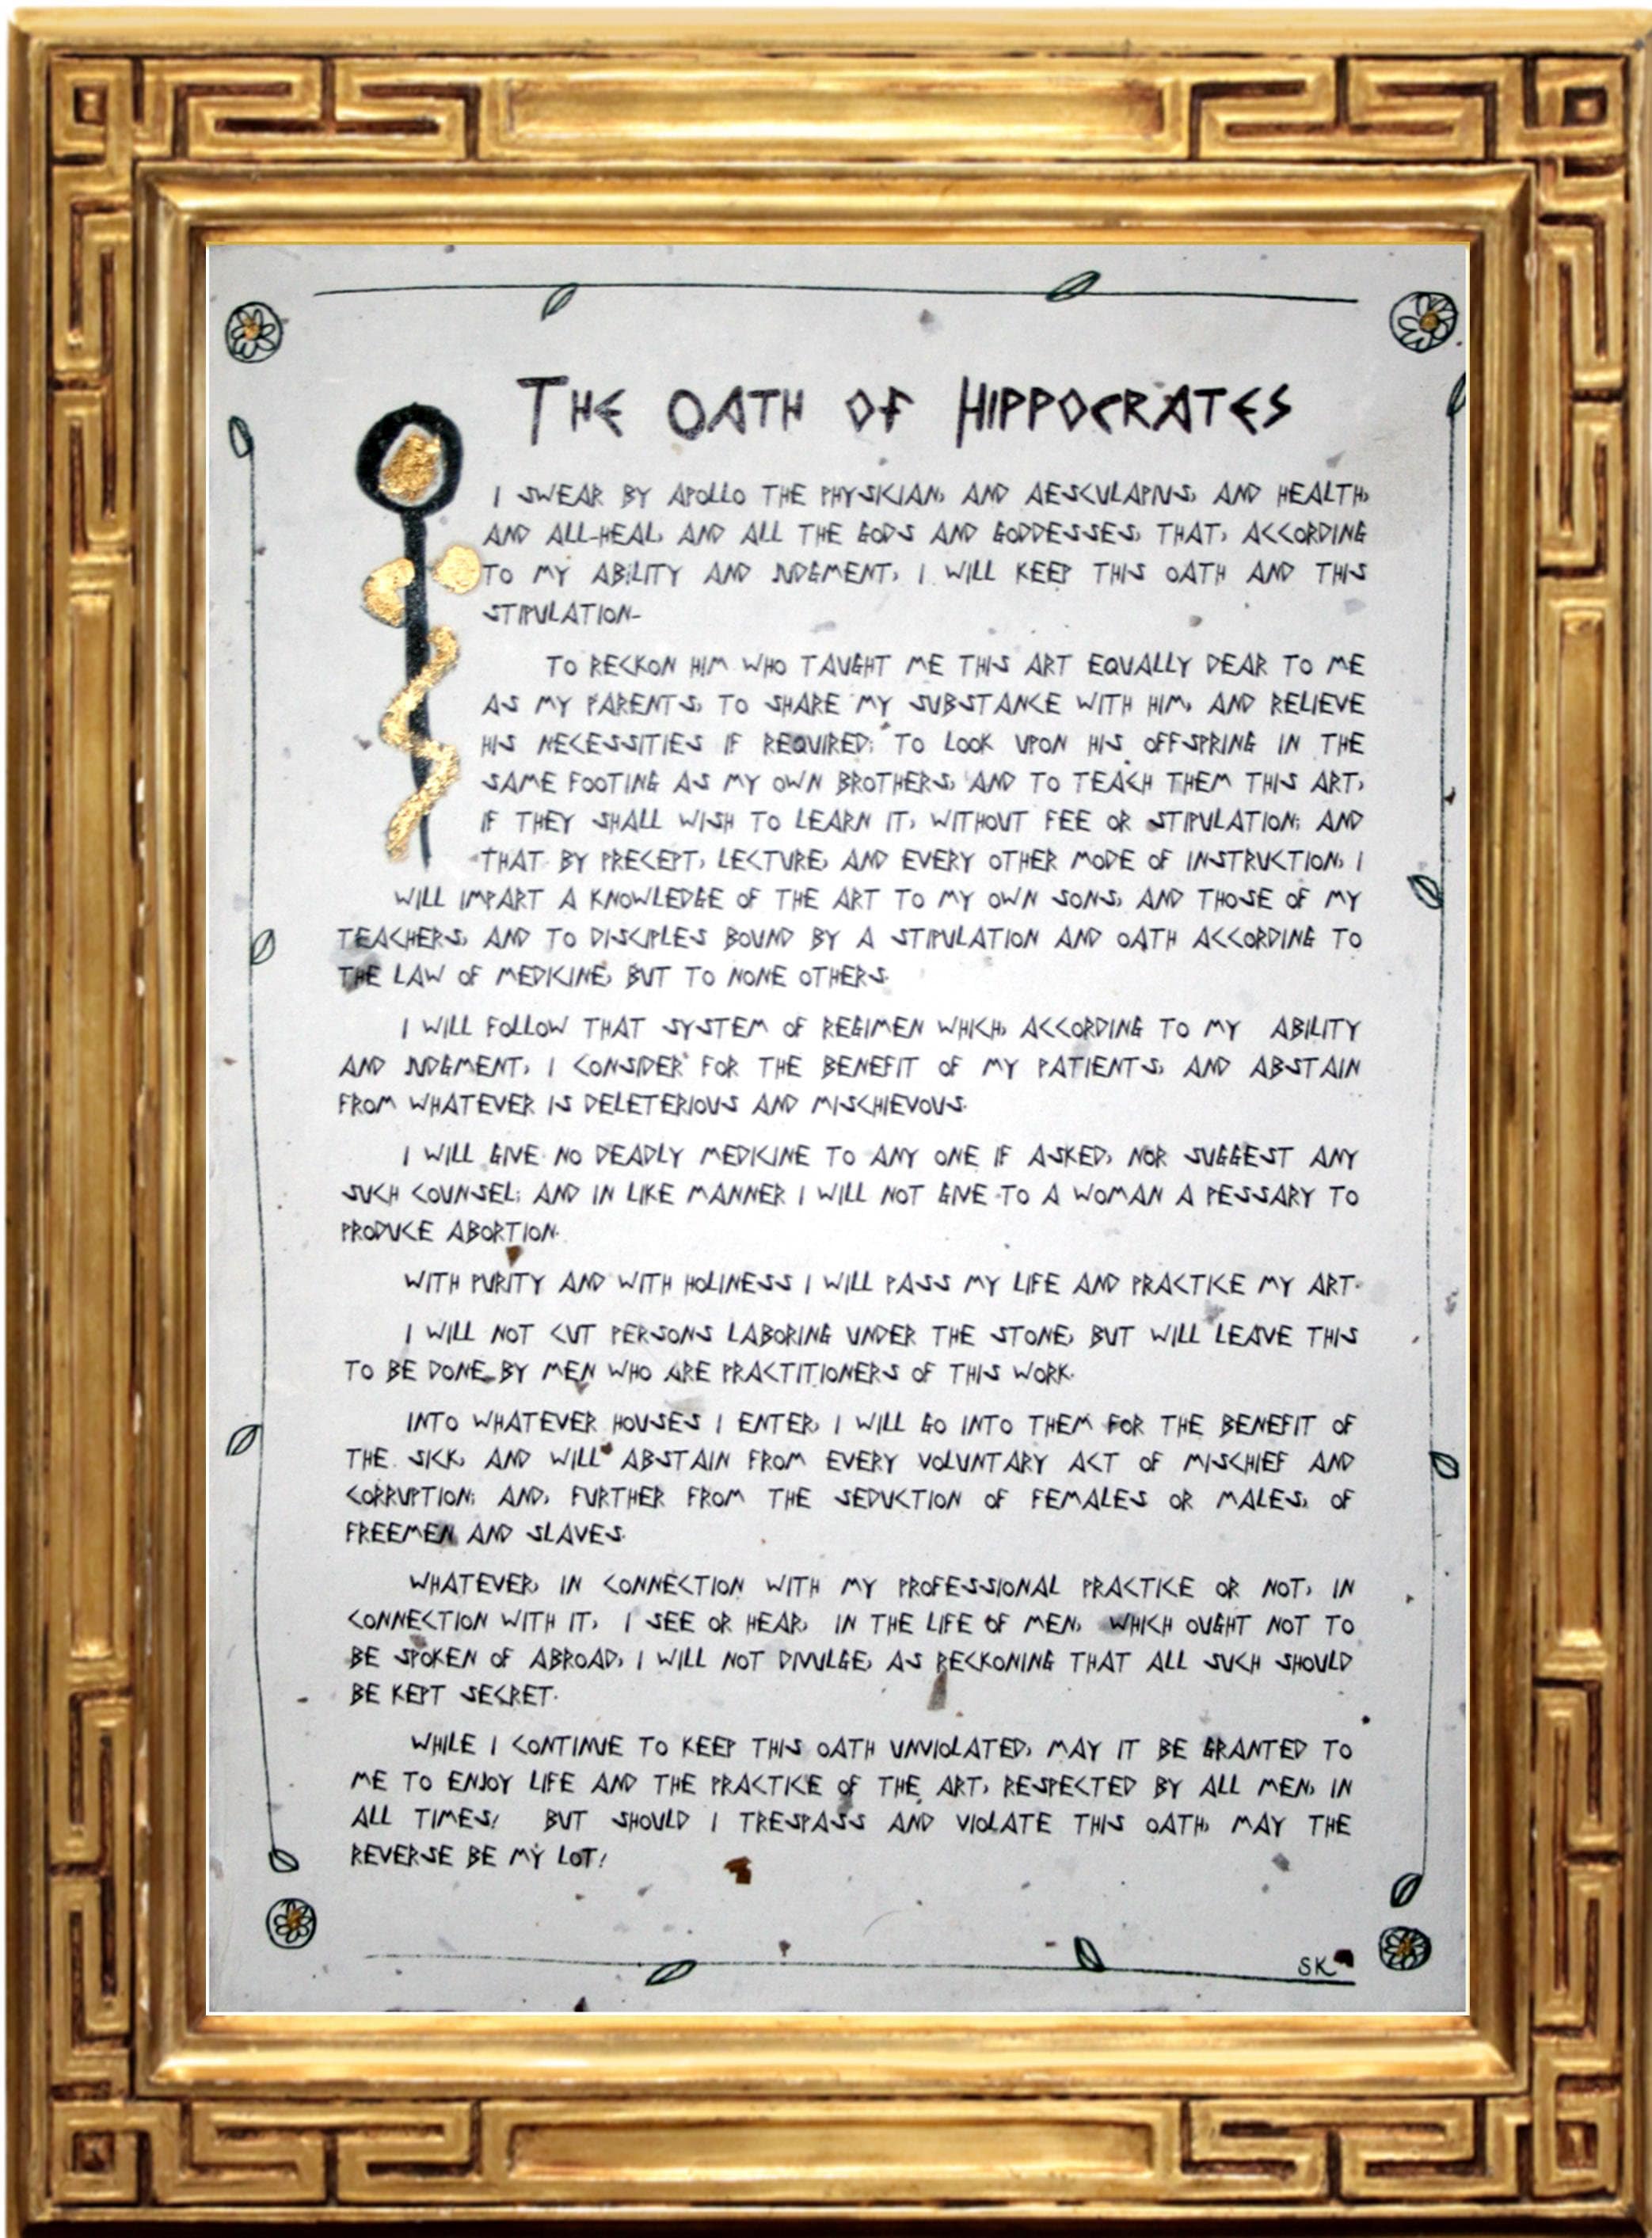 THE OATH OF HIPPOCRATES
I SWEAR BY APOLLO THE PHYSICIAN, AND AESCULAPIUS, AND HEALTH,
AND ALL-HEAL, AND ALL THE GODS AND GODDESSES, THAT, ACCORDING
TO MY ABILITY AND JUDGMENT, I WILL KEEP THIS OATH AND THIS
STIPULATION-
TO RECKON HIM WHO TAUGHT ME THIS ART EQUALLY DEAR TO ME
AS MY PARENTS, TO SHARE MY SUBSTANCE WITH HIM, AND RELIEVE
HIS NECESSITIES IF REQUIRED; TO LOOK UPON HIS OFFSPRING IN THE
SAME FOOTING AS MY OWN BROTHERS, AND TO TEACH THEM THIS ART,
IF THEY SHALL WISH TO LEARN IT, WITHOUT FEE OR STIPULATION; AND
THAT BY PRECEPT, LECTURE, AND EVERY OTHER MODE OF INSTRUCTION, I
WILL IMPART A KNOWLEDGE OF THE ART TO MY OWN SONS, AND THOSE OF MY
TEACHERS, AND TO DISCIPLES BOUND BY A STIPULATION AND OATH ACCORDING TO
THE LAW OF MEDICINE, BUT TO NONE OTHERS.
I WILL FOLLOW THAT SYSTEM OF REGIMEN WHICH, ACCORDING TO MY ABILITY
AND JUDGMENT, I CONSIDER FOR THE BENEFIT OF MY PATIENTS, AND ABSTAIN
FROM WHATEVER IS DELETERIOUS AND MISCHIEVOUS.
I WILL GIVE NO DEADLY MEDICINE TO ANY ONE IF ASKED, NOR SUGGEST ANY
SUCH COUNSEL; AND IN LIKE MANNER I WILL NOT GIVE TO A WOMAN A PESSARY TO
PRODUCE ABORTION.
WITH PURITY AND WITH HOLINESS I WILL PASS MY LIFE AND PRACTICE MY ART.
I WILL NOT CUT PERSONS LABORING UNDER THE STONE, BUT WILL LEAVE THIS
TO BE DONE BY MEN WHO ARE PRACTITIONERS OF THIS WORK.
INTO WHATEVER HOUSES I ENTER, I WILL GO INTO THEM FOR THE BENEFIT OF
THE SICK, AND WILL ABSTAIN FROM EVERY VOLUNTARY ACT OF MISCHIEF AND
CORRUPTION; AND, FURTHER FROM THE SEDUCTION OF FEMALES OR MALES, OF
FREEMEN AND SLAVES.
WHATEVER, IN CONNECTION WITH MY PROFESSIONAL PRACTICE OR NOT, IN
CONNECTION WITH IT, I SEE OR HEAR, IN THE LIFE OF MEN, WHICH OUGHT NOT TO
BE SPOKEN OF ABROAD, I WILL NOT DIVULGE, AS RECKONING THAT ALL SUCH SHOULD
BE KEPT SECRET.
WHILE I CONTINUE TO KEEP THIS OATH UNVIOLATED, MAY IT BE GRANTED TO
ME TO ENJOY LIFE AND THE PRACTICE OF THE ART, RESPECTED BY ALL MEN, IN
ALL TIMES! BUT SHOULD I TRESPASS AND VIOLATE THIS OATH, MAY THE
REVERSE BE MY LOT!
SK